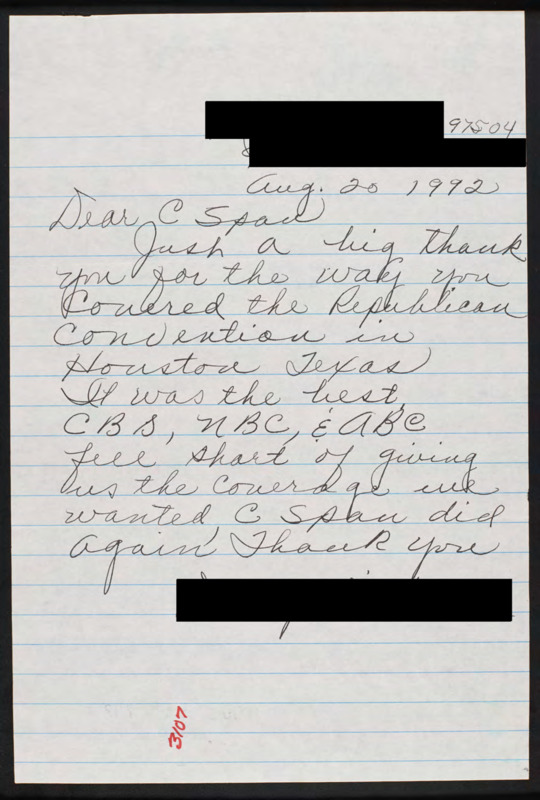 97504
Aug. 20 1992
Dear C Span
Just a big thank
you for the way you
Covered the Republican
Convention in
Houston Texas
It was the best,
CBS, NBC, & ABC
fell short of giving
us the coverage we
wanted, C Span did
Again, Thank you
3107